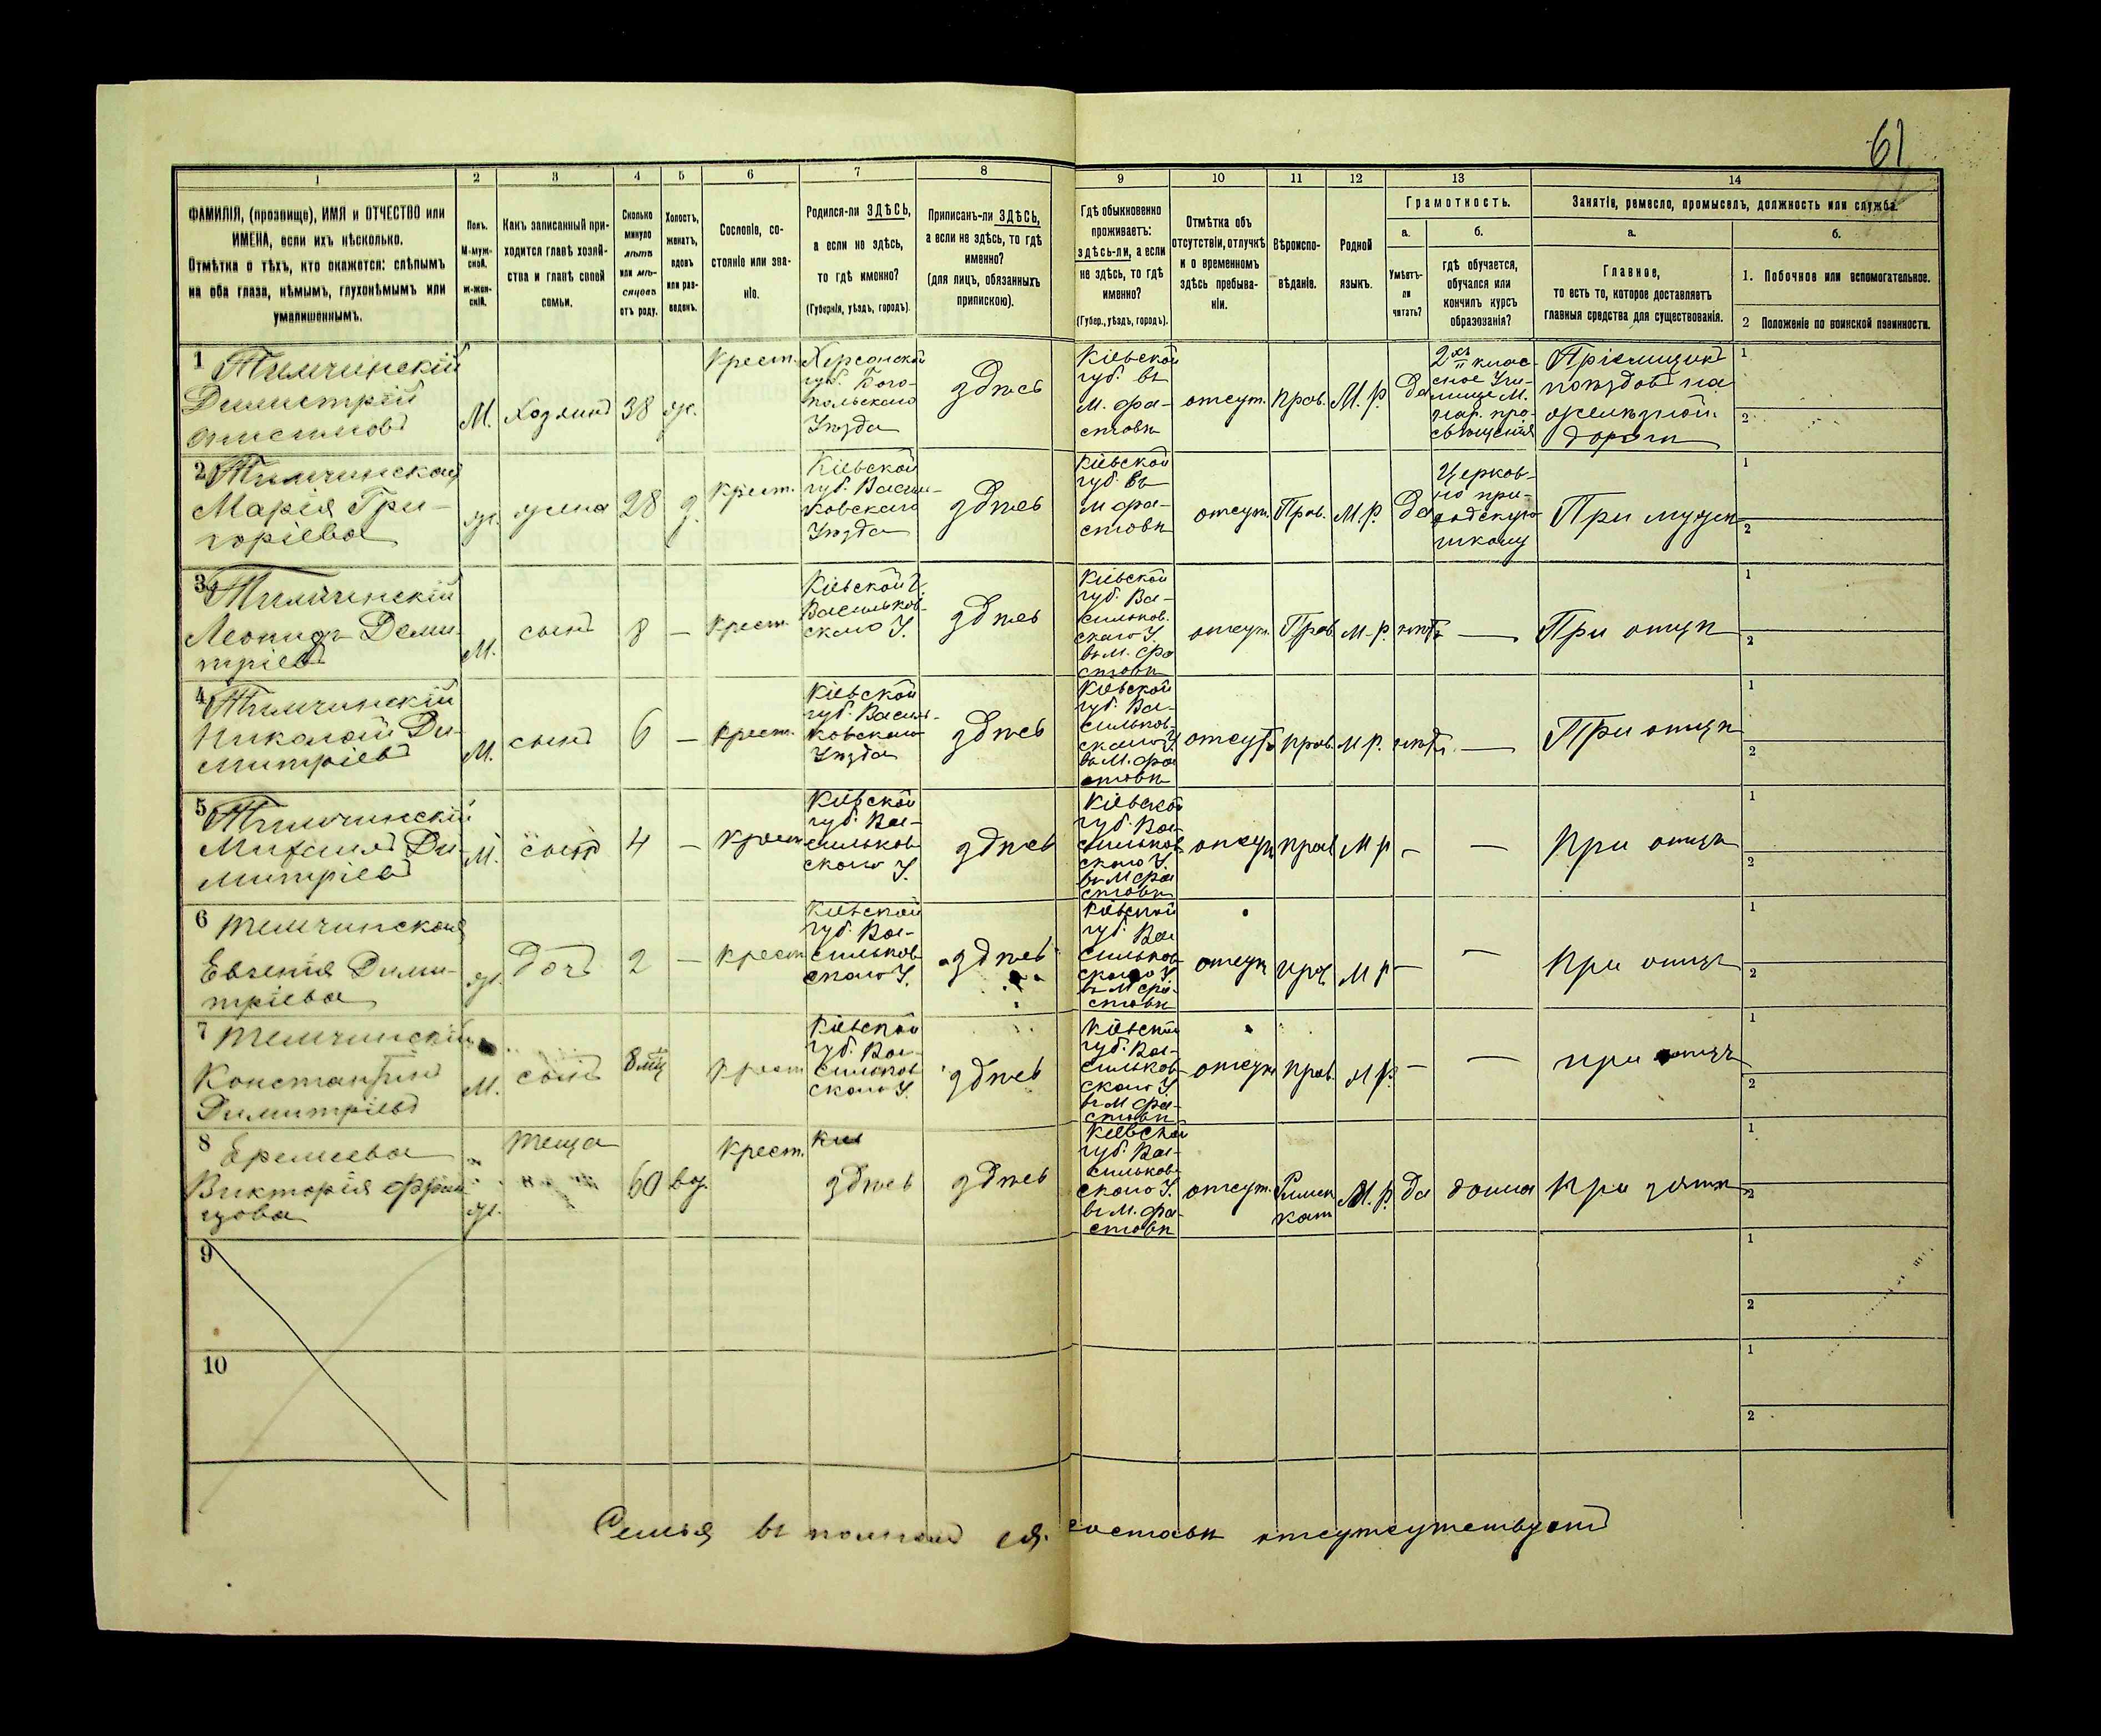 61
1 2 3 4 5 6 7 8 9 10 11 12 13 14
ФАМИЛІЯ, (прозвище), ИМЯ и ОТЧЕСТВО или
ИМЕНА, если ихъ нѣсколько.
Отмѣтка о тѣхъ, кто окажется: слѣпымъ
на оба глаза, нѣмымъ, глухонѣмымъ или
умалишеннымъ.
Полъ.
М-муж-
ской.
ж-жен-
скій.
Какъ записанный при-
ходится главѣ хозяй-
ства и главѣ своей
семьи.
Сколько
минуло
лѣтъ
или мѣ-
сяцевъ
отъ роду.
Холостъ,
женатъ,
вдовъ
или раз-
веденъ.
Сословіе, со-
стояніе или зва-
ніе.
Родился-ли ЗДѢСЬ,
а если не здѣсь,
то гдѣ именно?
(Губернія, уѣздъ, городъ).
Приписанъ-ли ЗДѢСЬ,
а если не здѣсь, то гдѣ
именно?
(для лицъ, обязанныхъ
припискою).
Гдѣ обыкновенно
проживаетъ:
здѣсь-ли, а если
не здѣсь, то гдѣ
именно?
(Губер., уѣздъ, городъ).
Отмѣтка объ
отсутствіи, отлучкѣ
и о временномъ
здѣсь пребыва-
ніи.
Вѣроиспо-
вѣданіе.
Родной
языкъ.
Грамотность.
а.
Умѣетъ-
ли
читать?
б.
гдѣ обучается,
обучался или
кончилъ курсъ
образованія?
Занятіе, ремесло, промыселъ, должность или служба.
а.
Главное,
то есть то, которое доставляетъ
главныя средства для существованія.
б.
1. Побочное или вспомогательное.
2 Положеніе по воинской повинности.
1 Тимчинскій
Димитрій
Онисимовъ
М. Хозяинъ 38 ж. Крест.
Херсонской
губ. Бого-
польскаго
Уѣзда
здѣсь
Кіевской
губ. въ
М. Фа-
стовѣ
отсут. прав. М.Р. Да
2хъ клас-
сное Учи-
лище М.
нар. про-
свѣщенія
Пріемщикъ
поѣздовъ на
желѣзной
дороги
1
2
2 Тимчинская
Марія Гри-
горіева
ж. жена 28 з. Крест.
Кіевской
губ. Васи-
ковскаго
Уѣзда
здѣсь
Кіевской
губ. въ
М Фа-
стовѣ
отсут. Прав. М.Р. Да
Церков-
но при-
ходскую
школу
При мужѣ
1
2
3 Тимчинскій
Леонидъ Деми-
тріевъ
М. сынъ 8 — Крест.
Кіевской г.
Васильков-
скаго У.
здѣсь
Кіевской
губ. Ва-
сильков.
скаго У.
въ М. Фа
стовѣ
отсут. Прав. М-Р. нѣтъ — При отцѣ
1
2
4 Тимчинскій
Николай Ди-
митріевъ
М. сынъ 6 — крест.
Кіевской
губ. Василь-
ковскаго
Уѣзда
здѣсь
Кіевской
губ. Ва-
сильков-
скаго У.
въ М. Фа
стовѣ
отсутъ прав. М Р. нѣтъ. — При отцѣ
1
2
5 Тимчинскій
Михаилъ Ди-
митріевъ
М. сынъ 4 — крест
Кіевской
губ. Ва-
сильков
скаго У.
здѣсь
Кіевской
губ. Ва-
сильков
скаго У.
въ М Фа
стовѣ
отсут прав М Р — — При отцѣ
1
2
6 Темчинская
Евгенія Дими-
тріева
ж. Дочь 2 — крест
Кіевской
губ. Ва-
сильков
скаго У.
здѣсь
Кіевской
губ. Ва
сильков
скаго У.
въ М Фа-
стовѣ
отсут прав М Р — — При отцѣ
1
2
7 Темчинскій
Константинъ
Димитріевъ
М. сынъ 8 мц крест
Кіевской
губ. Ва-
сильков
скаго У.
здѣсь
Кіевской
губ. Ва-
сильков
скаго У
въ М Фа-
стовѣ
отсут прав. М Р. — — при отцѣ
1
2
8 Еремеева
Викторія Фран
цова
ж. теща 60 вд. Крест.
Кіев
здѣсь здѣсь
Кіевской
губ. Ва-
сильков
скаго У.
въ М. Фа-
стовѣ
отсут. Римск
кат М.Р. да дома При зятѣ
1
2
9
1
2
10
1
2
Семья въ полномъ ея составѣ отсутсутствуетъ